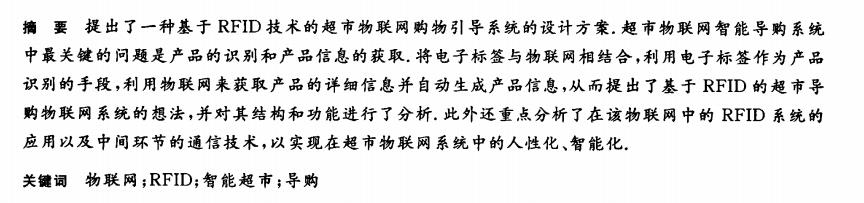 摘 要 提出了一种基于 RFID 技术的超市物联网购物引导系统的设计方案. 超市物联网智能导购系统
中最关键的问题是产品的识别和产品信息的获取. 将电子标签与物联网相结合,利用电子标签作为产品
识别的手段,利用物联网来获取产品的详细信息并自动生成产品信息,从而提出了基于 RFID 的超市导
购物联网系统的想法,并对其结构和功能进行了分析. 此外还重点分析了在该物联网中的 RFID 系统的
应用以及中间环节的通信技术,以实现在超市物联网系统中的人性化、智能化.
关键词 物联网;RFID;智能超市;导购